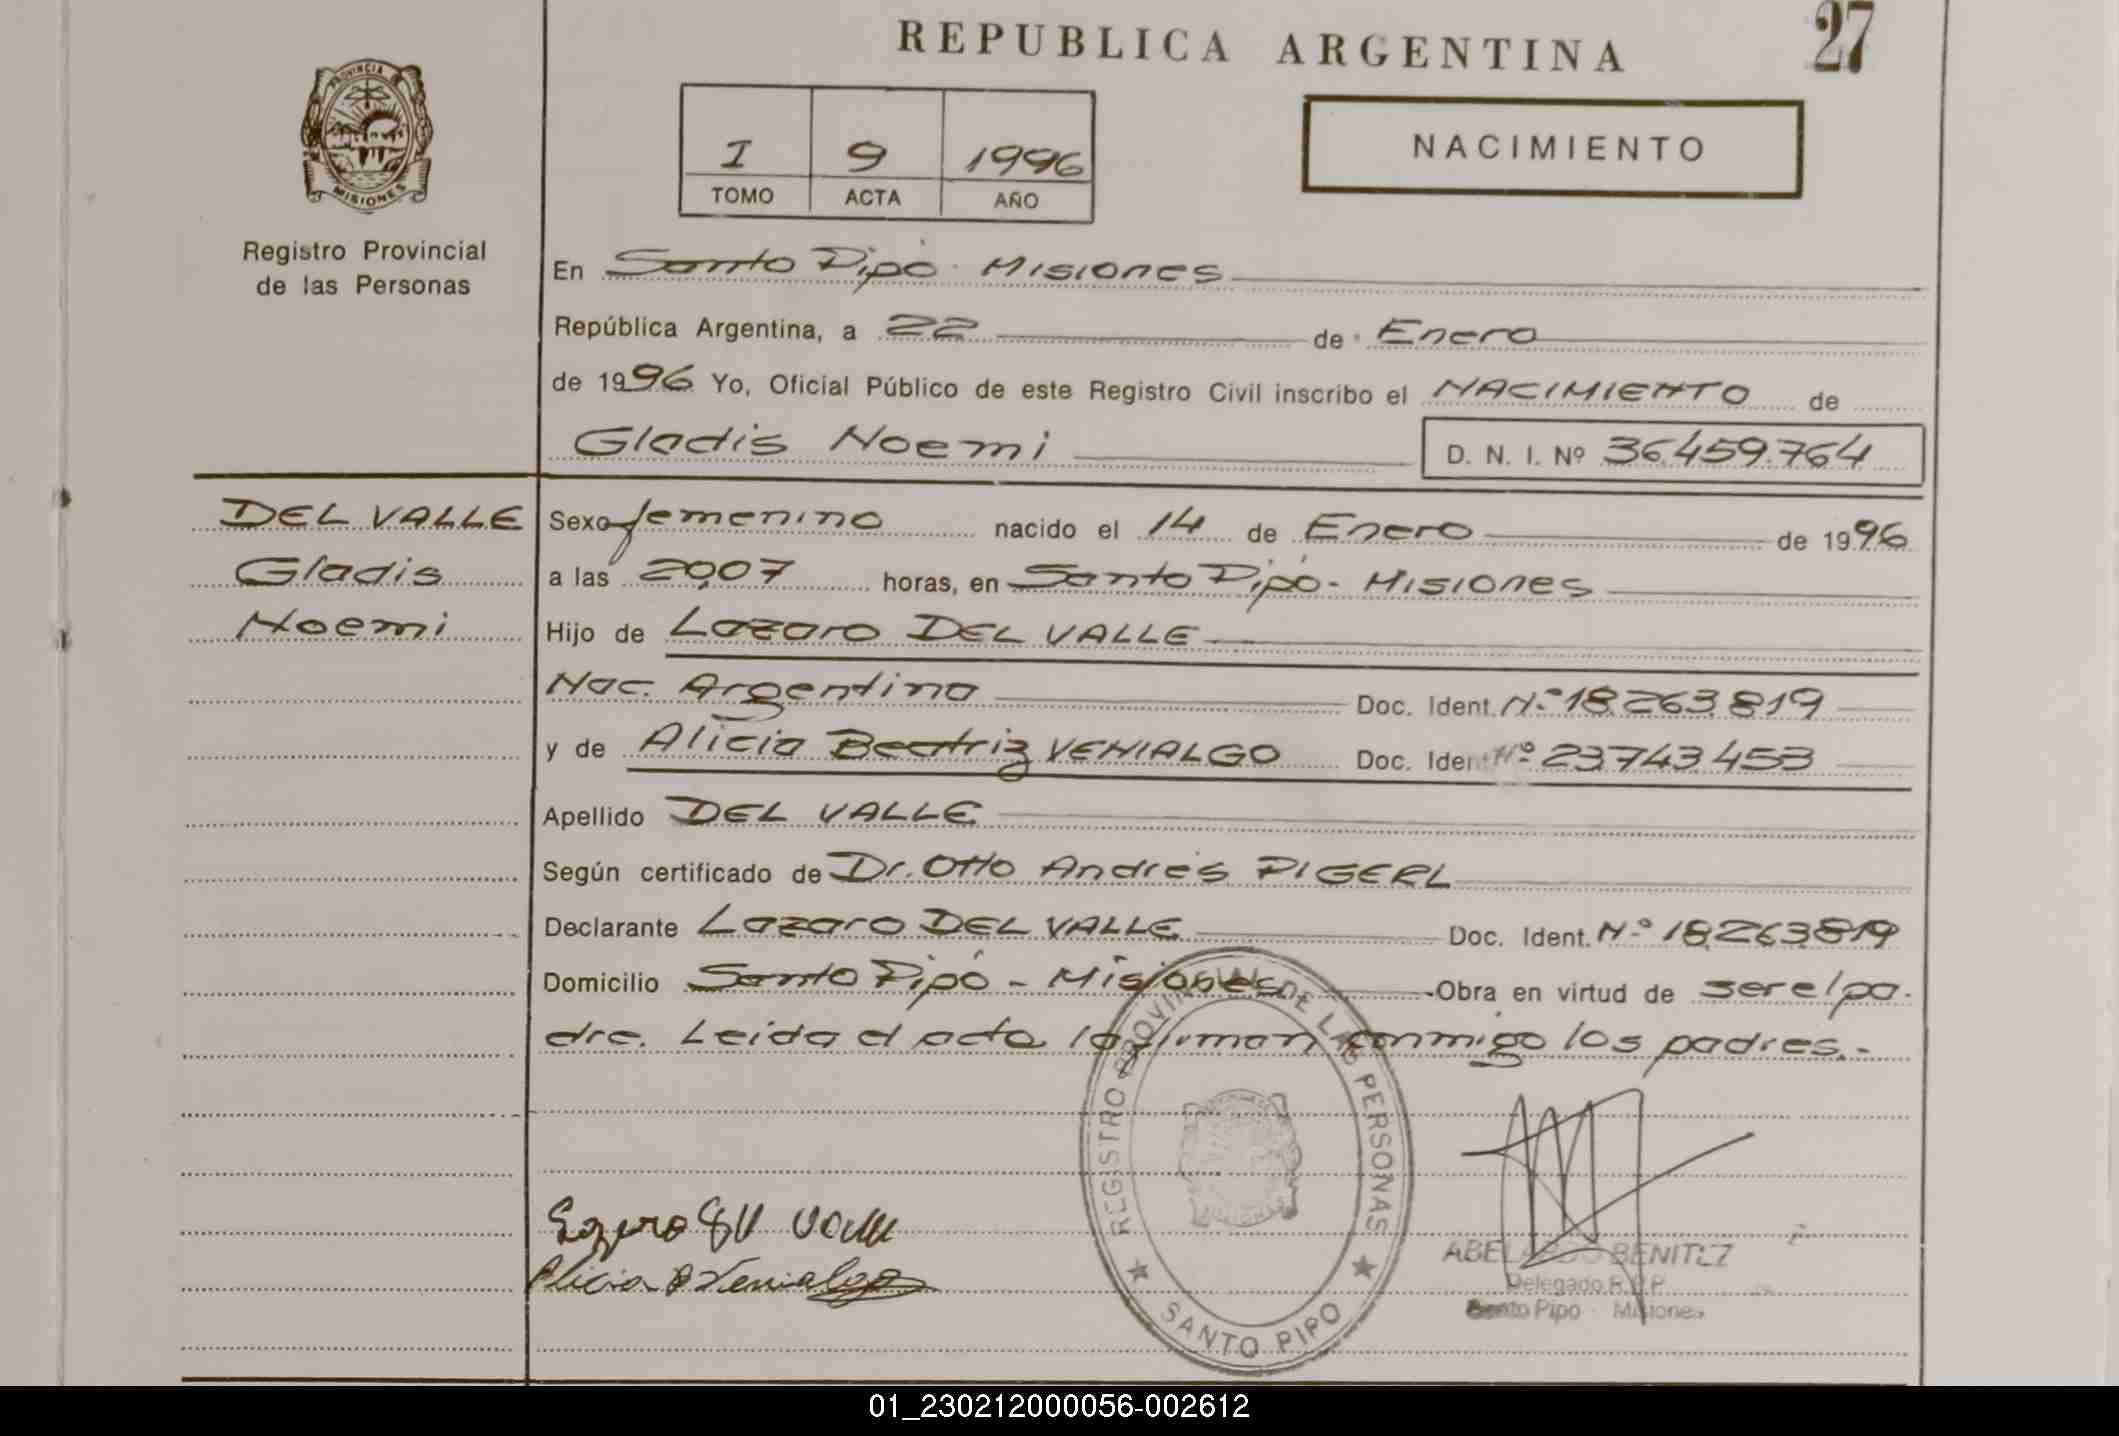 REPUBLICA ARGENTINA
27
PROVINCIA
MISIONES
Registro Provincial
de las Personas
I 9 1996
TOMO ACTA AÑO
NACIMIENTO
En Santo Pipó - Misiones
República Argentina, a 22 de Enero
de 1996 Yo, Oficial Público de este Registro Civil inscribo el NACIMIENTO de
Gladis Noemi D. N. I. Nº 36.459.764
DEL VALLE
Gladis
Noemi
Sexo femenino nacido el 14 de Enero de 1996
a las 20,07 horas, en Santo Pipó - Misiones
Hijo de Lazaro DEL VALLE
Nac. Argentina Doc. Ident. N.º 18.263.819
y de Alicia Beatriz VENIALGO Doc. Ident N.º 23.743.453
Apellido DEL VALLE
Según certificado de Dr. Otto Andrés PIGERL
Declarante Lazaro DEL VALLE Doc. Ident. N.º 18.263.819
Domicilio Santo Pipó - Misiones. Obra en virtud de ser el pa-
dre. Leida el acta la firman conmigo los padres.-
REGISTRO PROVINCIAL DE LAS PERSONAS
SANTO PIPO
Lazaro del Valle
Alicia B Venialgo
ABELARDO BENITEZ
Delegado R.P.P.
Santo Pipo - Misiones
01_230212000056-002612